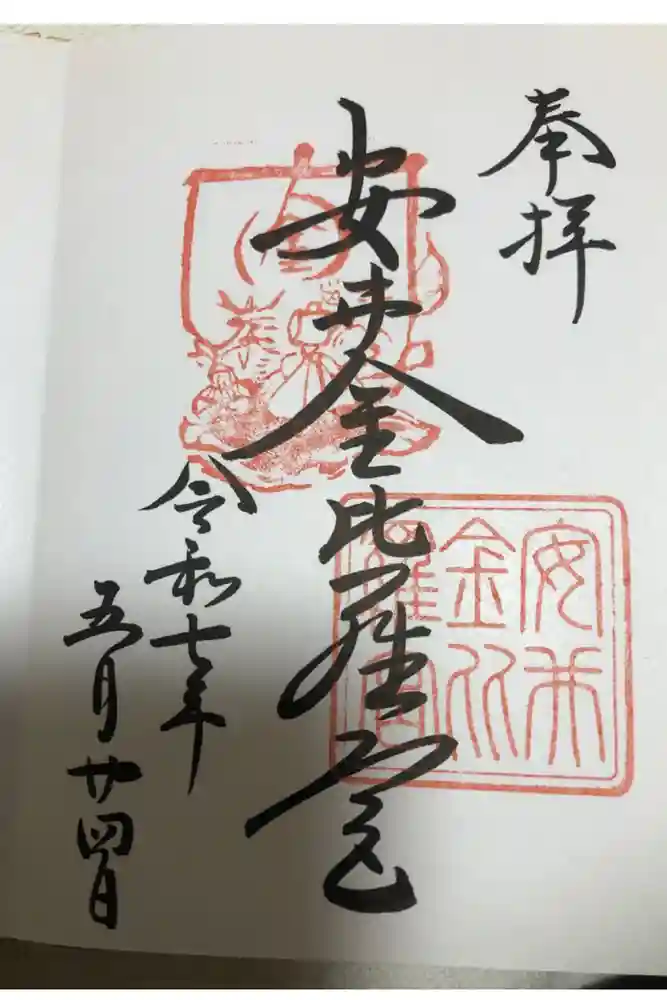 奉拝
安井金比羅宮
安井
金比
羅宮
令和七年
五月廿四日